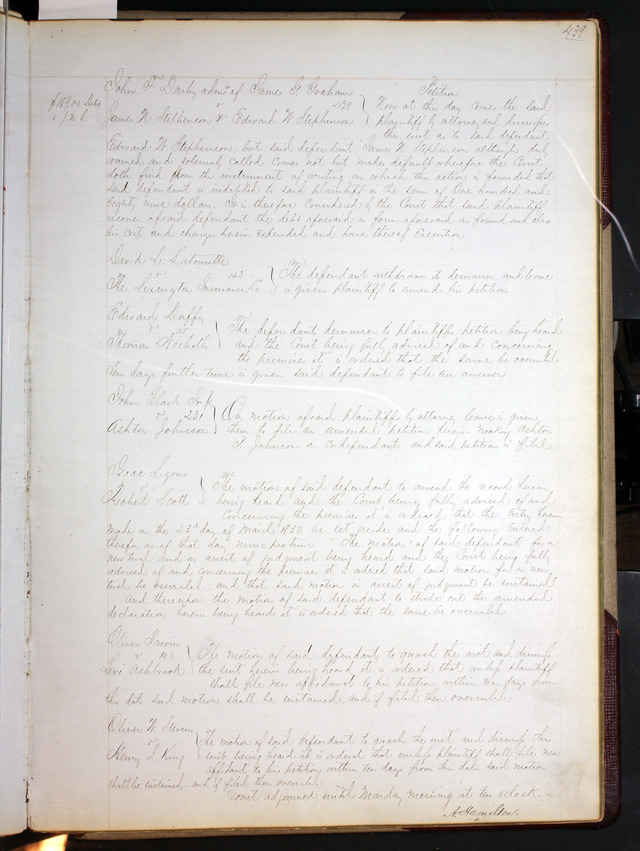 439
John F. Darby admr of James G. Graham Petition
$189.00 Debt
v 239 Now at this day come the said
James N. Stephenson & Edward W. Stephenson plaintiff by attorney and dismisses
this suit as to said defendant
Edward W. Stephenson, but said defendant James N. Stephenson although duly
warned and solemnly called comes not but makes default wherefore the Court
doth find from the instrument of writing on which this action is founded that
said defendant is indebted to said plaintiff in the sum of One hundred and
Eighty nine dollars. It is therefore Considered by the Court that said plaintiff
recover of said defendant the debt aforesaid in form aforesaid as found and also
his cost and charges herein expended and have thereof Execution
David L. Latourette
v 133 The defendant withdraws its demurrer and leave
The Lexington Insurance Co is given plaintiff to amend his petition
Edward Duffy
v The defendants demurrer to plaintiffs petition being heard
Thomas and the Court being fully advised of and concerning
the premises it is ordered that the same be overruled
Ten days further time is given said defendant to file an answer
John Clark
v 230 On motion of said plaintiffs by attorney leave is given
Ashton Johnson them to file an amended petition herein making Ashton
P. Johnson a codefendant and said petition is filed
Isaac Lyons
v The motions of said defendant to amend the record herein
Robert Scott being heard and the Court being fully advised of and
concerning the premises it is ordered that the Entry herein
made on the 23rd day of March 1850 be set aside and the following entered
therefor as of that day nunc pro tunc: The motion of said defendant for a
new trial and in arrest of judgment being heard and the Court being fully
advised of and concerning the premises it is ordered that said motion for a new
trial be overruled and that said motion in arrest of judgment be sustained
and thereupon the motion of said defendant to strike out the amended
declaration herein being heard it is ordered that the same be overruled
Irwin
v 143 The motion of said defendant to quash the writ and dismiss
Levi Ashbrook the suit herein being heard it is ordered that unless plaintiff
shall file new affidavit to his petition within ten days from
this date said motions shall be sustained and if filed then overruled
Oliver W. Stevens
v The motion of said defendant to quash the writ and dismiss the
Henry L King suit being heard it is ordered that unless plaintiff shall file new
affidavit to his petition within ten days from this date said motion
shall be sustained and if filed then overruled
Court adjourned until Monday morning at ten oclock.
A. Hamilton.